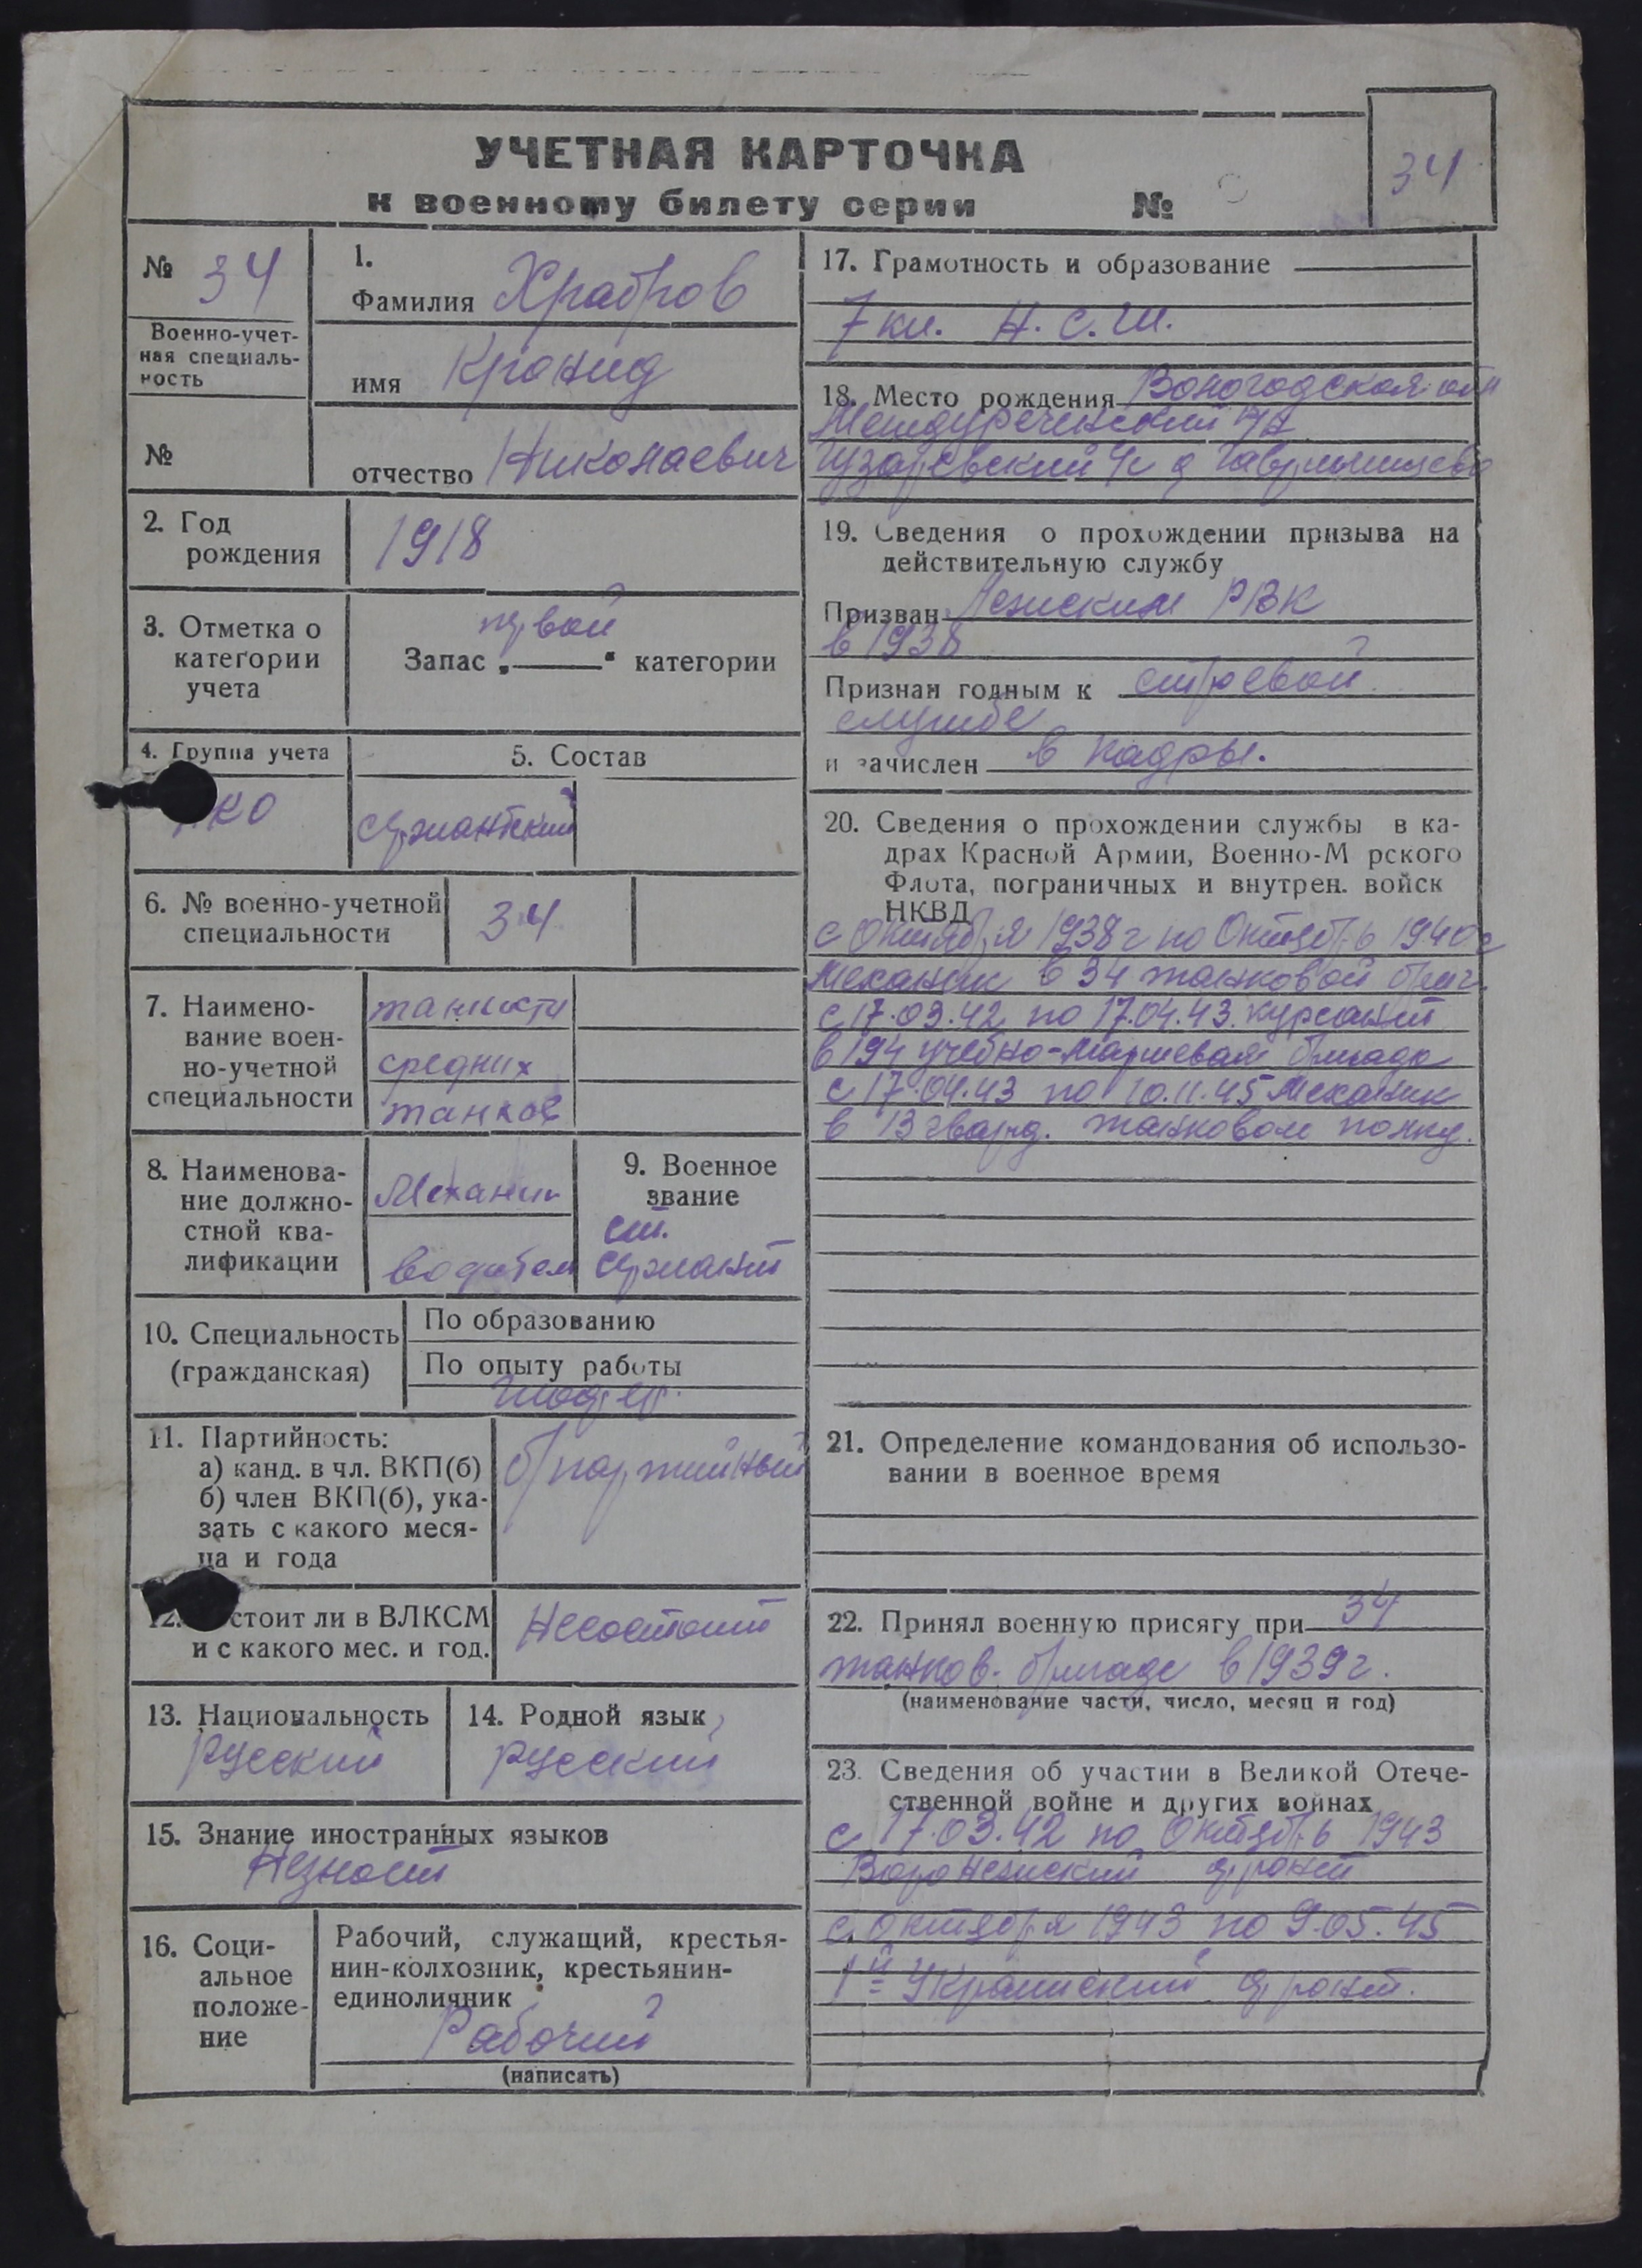 УЧЕТНАЯ КАРТОЧКА
к военному билету серии №
34
№ 34
Военно-учет-
ная специаль-
ность
№
1.
Фамилия Храбров
имя Кронид
отчество Николаевич
2. Год
рождения
1918
3. Отметка о
категории
учета
первой
Запас „ “ категории
4. Группа учета
КО
5. Состав
сержантский
6. № военно-учетной
специальности
34
7. Наимено-
вание воен-
но-учетной
специальности
танкисты
средних
танков
8. Наименова-
ние должно-
стной ква-
лификации
Механик
водитель
9. Военное
звание
ст.
сержант
10. Специальность
(гражданская)
По образованию
По опыту работы
11. Партийность:
а) канд. в чл. ВКП(б)
б) член ВКП(б), ука-
зать с какого меся-
ца и года
б/партийный
12. стоит ли в ВЛКСМ
и с какого мес. и год.
Несостоит
13. Национальность
русский
14. Родной язык
русский
15. Знание иностранных языков
Незнает
16. Соци-
альное
положе-
ние
Рабочий, служащий, крестья-
нин-колхозник, крестьянин-
единоличник
Рабочий
(написать)
17. Грамотность и образование
7 кл. Н. С. Ш.
18. Место рождения Вологодская обл
Междуреченский р/н
д
19. Сведения о прохождении призыва на
действительную службу
Призван РВК
в 1938
Признан годным к строевой
службе
и зачислен в кадры.
20. Сведения о прохождении службы в ка-
драх Красной Армии, Военно-М рского
Флота, пограничных и внутрен. войск
НКВД
с Октября 1938 г по Октябрь 1940 г
Механик в 34 танковой бриг.
с 17.03.42 по 17.04.43. курсант
в 194 учебно-Маршевая бригада
с 17.04.43 по 10.11.45 Механик
в 13 гвард. танковом полку.
21. Определение командования об использо-
вании в военное время
22. Принял военную присягу при 34
танков. бригаде в 1939 г.
(наименование части, число, месяц и год)
23. Сведения об участии в Великой Отече-
ственной войне и других войнах
с 17.03.42 по Октябрь 1943
Воронежский фронт
с октября 1943 по 9.05.45
1й Украинский фронт.